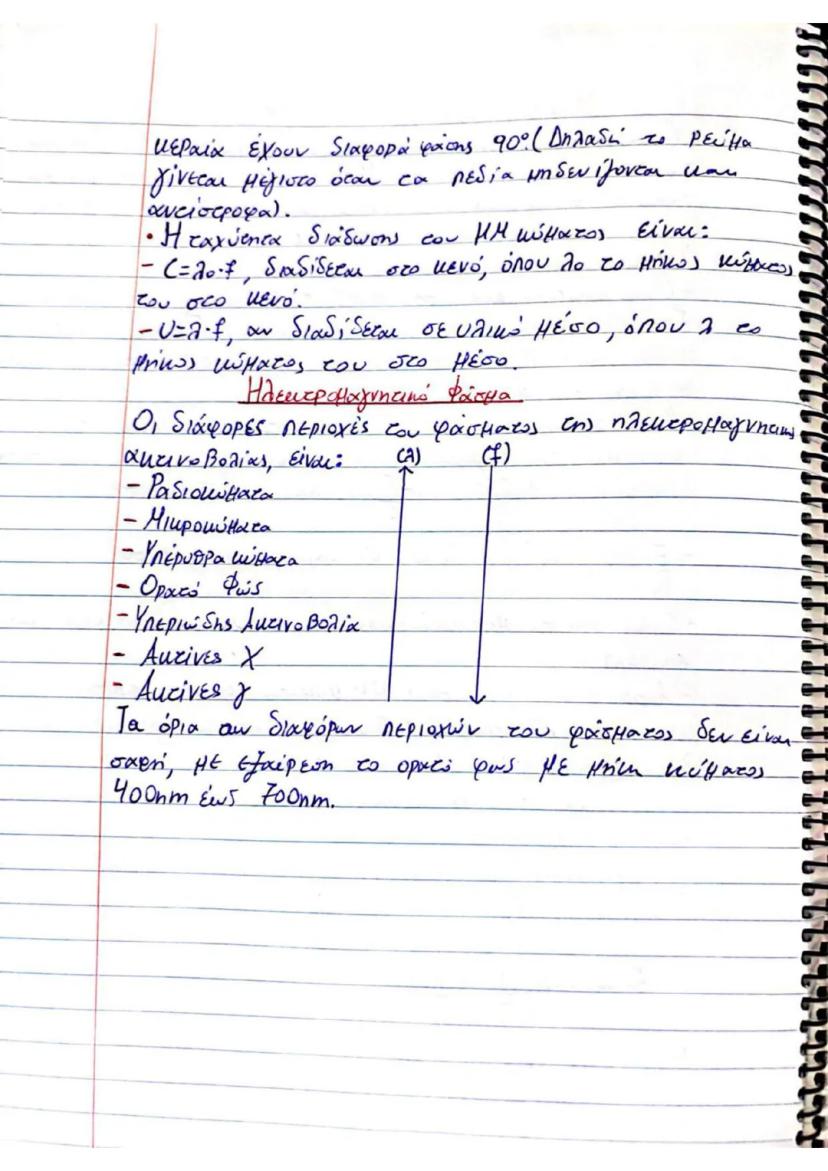 κεραία έχουν διαφορά φάσης 90° (Δηλαδή το ρεύμα
γίνεται μέγιστο όταν τα πεδία μηδενίζονται και
αντίστροφα).
• Η ταχύτητα διάδωσης του ΗΜ κύματος είναι:
- C=λο·f, διαδίδεται στο κενό, όπου λο το μήκος κύματος
του στο κενό.
- U=λ·f, αν διαδίδεται σε υλικό μέσο, όπου λ το
μήκος κύματος του στο μέσο.
Ηλεκτρομαγνητικό Φάσμα
Οι διάφορες περιοχές του φάσματος της ηλεκτρομαγνητικής
ακτινοβολίας, είναι: (λ) (f)
- Ραδιοκύματα
- Μικροκύματα
- Υπέρυθρα κύματα
- Ορατό Φώς
- Υπεριώδης Ακτινοβολία
- Ακτίνες Χ
- Ακτίνες γ
Τα όρια των διαφόρων περιοχών του φάσματος δεν είναι
σαφή, με εξαίρεση το ορατό φως με μήκη κύματος
400nm έως 700nm.